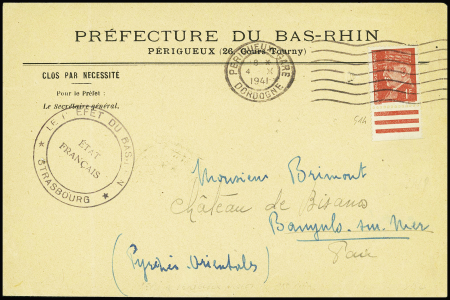 PRÉFECTURE DU BAS-RHIN
PÉRIGUEUX (26, Cours Tourny)
CLOS PAR NÉCESSITÉ
Pour le Préfet :
Le Secrétaire général.
PÉRIGUEUX GARE
4 X
1941
DORDOGNE
LE PRÉFET DU BAS-RHIN
ÉTAT
FRANÇAIS
* STRASBOURG *
Monsieur Brimont
Château de
Banyuls-sur-Mer
(Pyrénées-Orientales)